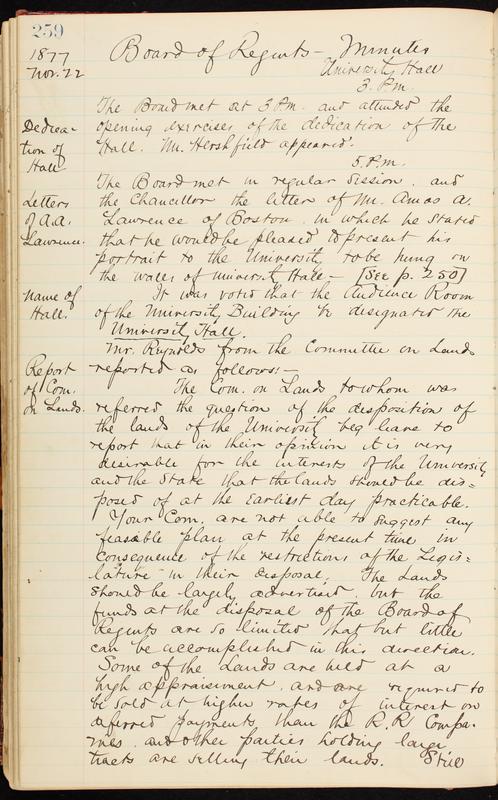 259
1877
Nov. 22
Board of Regents – Minutes
University Hall
3. P.m.
The Board met at 3 P.m. and attended the
Dedica-
tion of
Hall
opening exercises of the dedication of the
Hall. Mr. Hershfield appeared.
5. P.m.
The Board met in regular session, and
Letters
of A.A.
Lawrence.
the Chancellor the letter of Mr. Amos A.
Lawrence of Boston, in which he stated
that he would be pleased to present his
portrait to the University, to be hung on
the walls of University Hall – [See p. 250]
Name of
Hall.
It was voted that the Audience Room
of the University Building be designated the
University Hall.
Mr. Reynolds from the Committee on Lands
Report
of Com.
on Lands.
reported as follows: –
The Com. on Lands to whom was
referred the question of the disposition of
the lands of the University beg leave to
report that in their opinion it is very
desirable for the interests of the University
and the State that the lands should be dis=
posed of at the earliest day practicable.
Your Com. are not able to suggest any
feasable plan at the present time in
consequence of the restrictions of the Legis=
lature in their disposal. The Lands
should be largely advertised, but the
funds at the disposal of the Board of
Regents are so limited that but little
can be accomplished in this direction.
Some of the Lands are held at a
high appraisement, and are required to
be sold at higher rates of interest on
deferred payments, than the R.R. Compa-
nies, and other parties holding large
tracts are selling their lands. Still